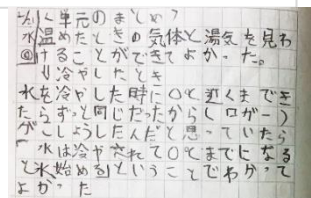 く単元のまとめ〉
水温めたときの気体と湯気を見わ
④けることができてよかった。
↓冷やしたとき
水を冷やした時に○と近くまでき
たらずっと同じだったから(口が一)
がこしょうしたんだと思っていたら
水は冷やされて○とまでになる
と氷始めるということでわかって
よかった